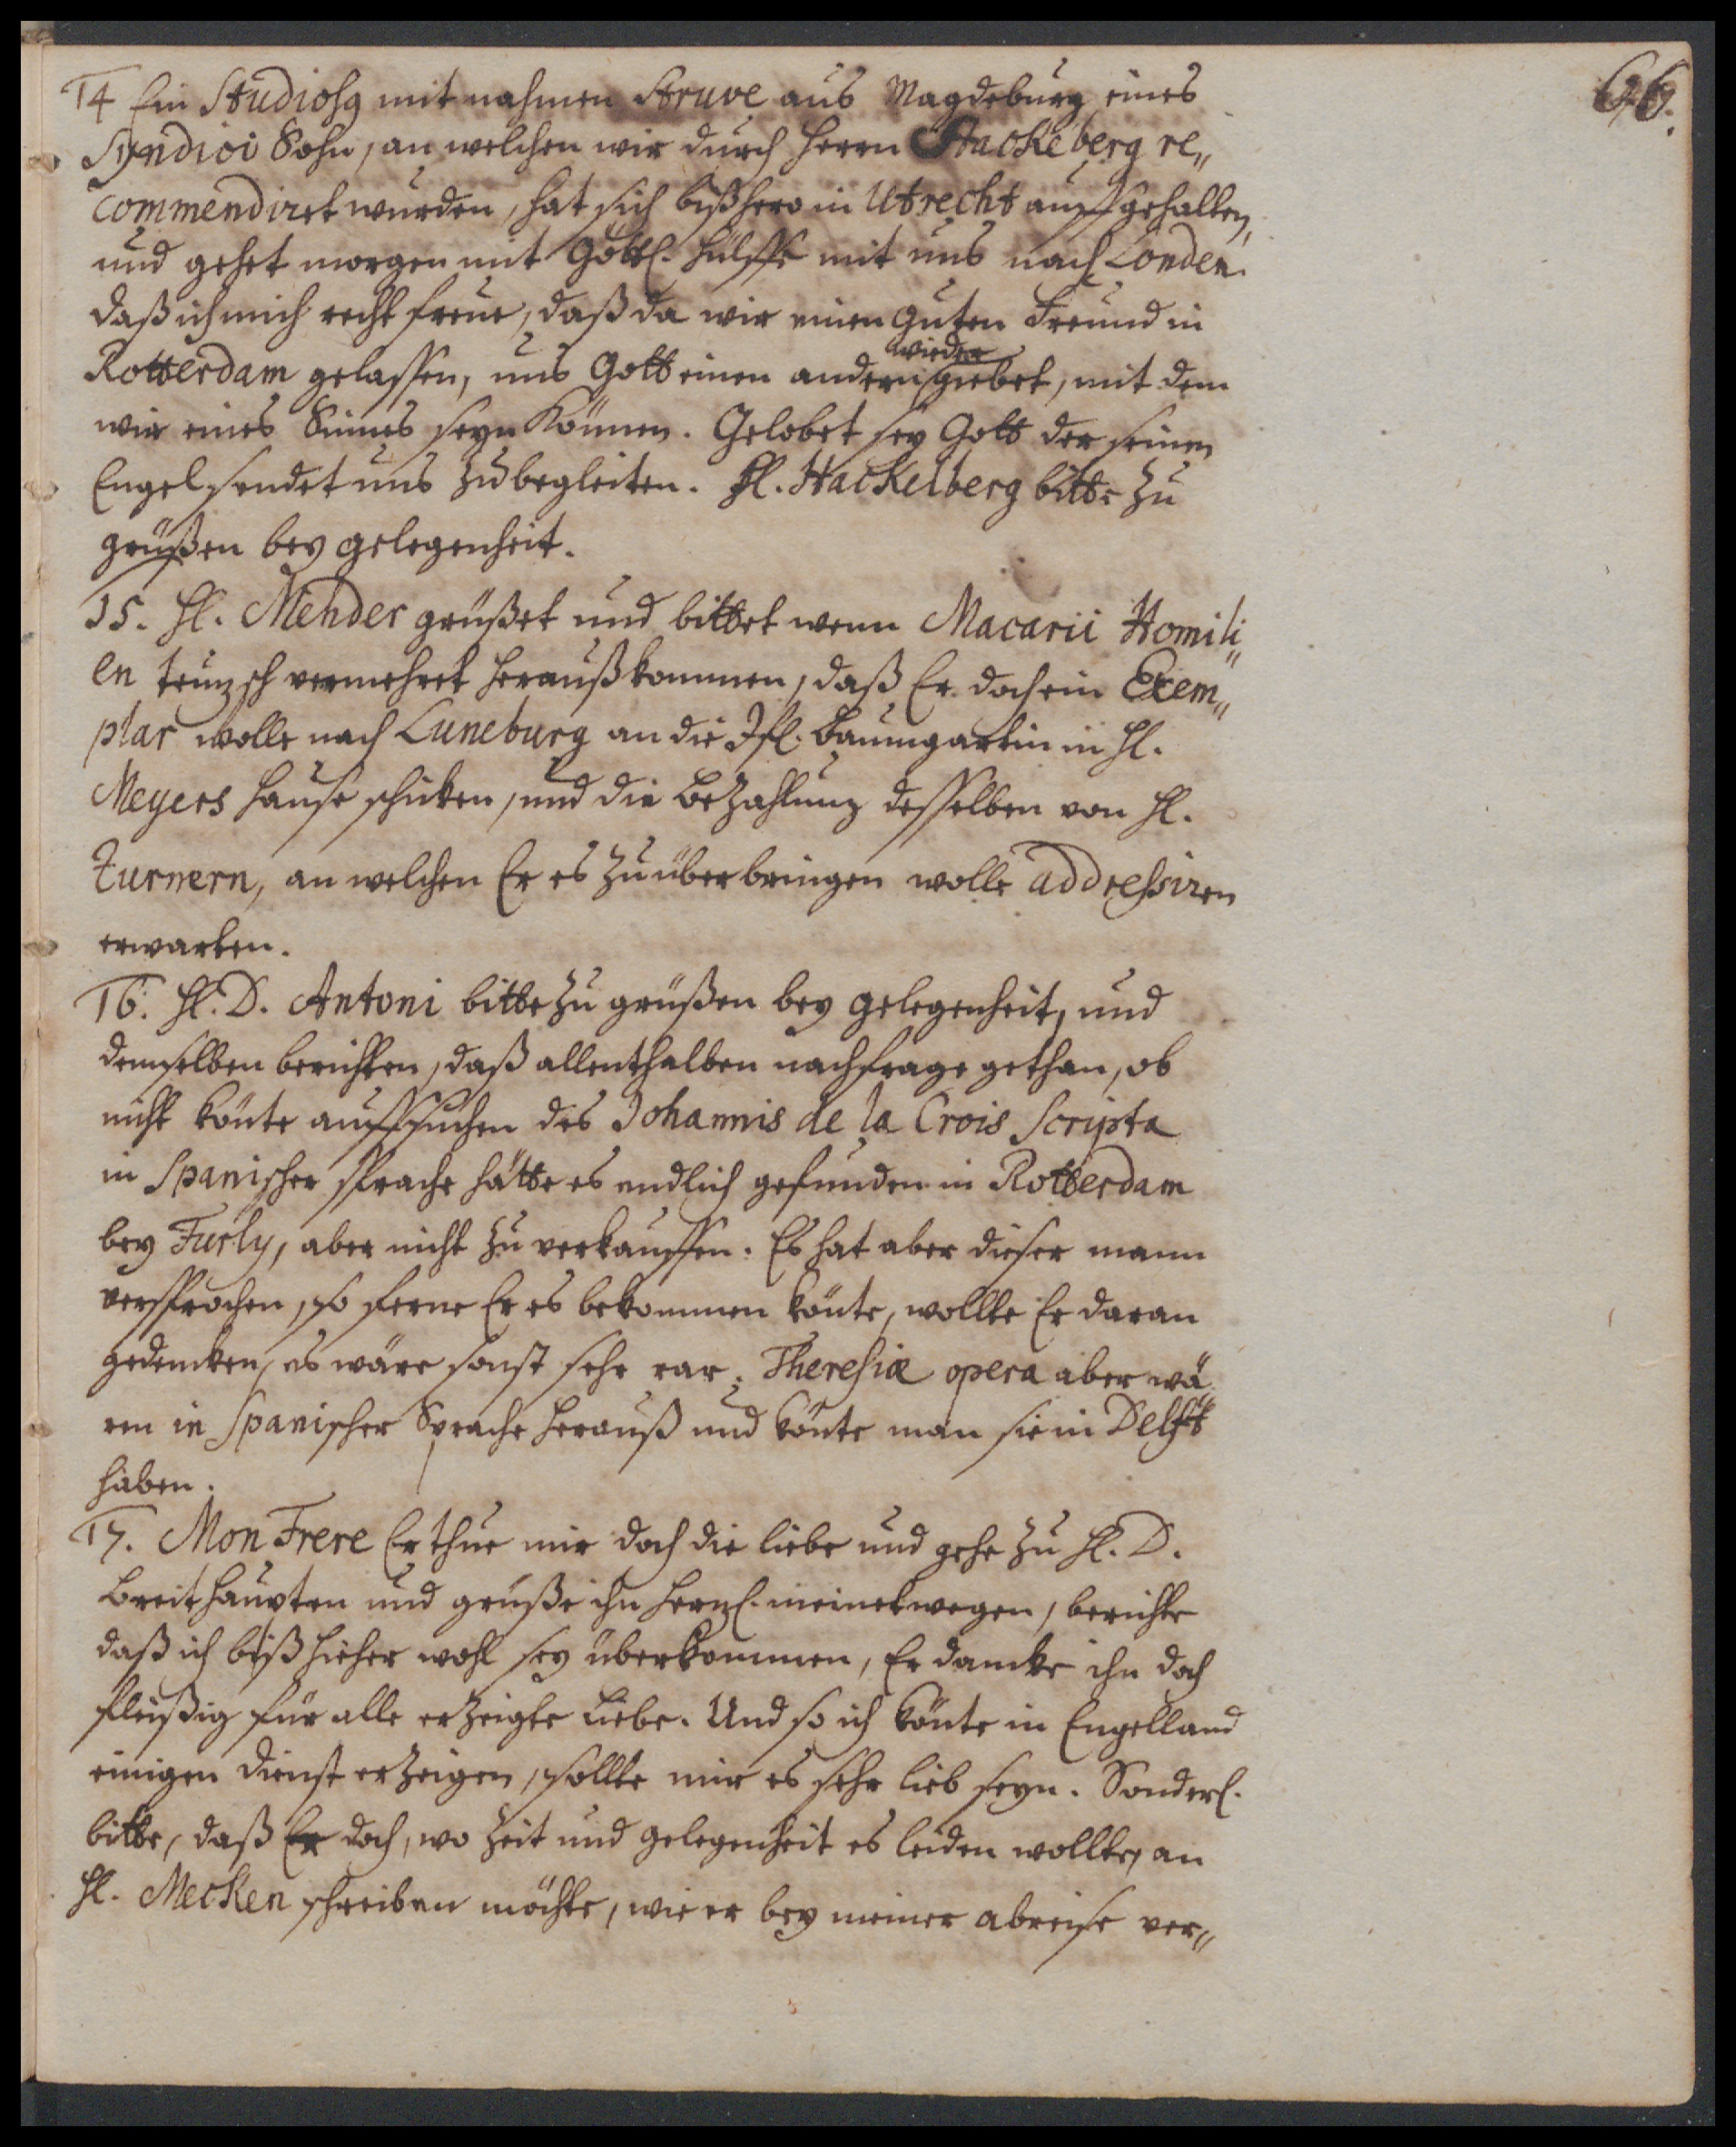 66.
14 Ein Studiosg mit nahmen Struve aus Magdeburg eines
Syndici Sohn, an welchen wir durch Herrn Hackeberg re„
commendiret wurden, hat sich bißhero in Utrecht auffgehalten,
und gehet morgen mit Göttl. hülffe mit uns nach Londen.
daß ich mich recht freue, daß da wir einen guten Freund in
Rotterdam gelassen, uns Gott einen andern wieder giebet, mit dem
wir eines Sinnes seyn können. Gelobet sey Gott der seinen
Engel sendet uns zu begleiten. Hl. Hackelberg bitte zu
grüßen bey gelegenheit.
15. Hl. Mehder grüßet und bittet wenn Macarii Homili„
en teuzsch vermehret heraußkommen, daß Er doch ein Exem„
plar wolle nach Luneburg an die Jfl. Baumgartin in Hl.
Meyers Hause schicken, und die Bezahlung desselben von Hl.
Turnern, an welchen Er es zu überbringen wolle addressiren
erwarten.
16. Hl. D. Antoni bitte zu grüßen bey gelegenheit, und
demselben berichten, daß allenthalben nachfrage gethan, ob
nicht könte auffsuchen des Johannis de la Crois Scripta
in Spanischer sprache hätte es endlich gefunden in Rotterdam
bey Furly, aber nicht zu verkauffen. Es hat aber dieser mann
versprochen, so ferne Er es bekommen könte, wollte Er daran
gedencken, es wäre sonst sehr rar. Theresiæ opera aber wä„
ren in Spanischer Sprache herauß und könte man sie in Delft
haben.
17. Mon Frere Er thue mir doch die liebe und gehe zu Hl. D.
Breithaupten und grüße ihn hertzl. meinetwegen, berichte
daß ich biß hieher wohl sey überkommen, Er dancke ihn doch
fleißig für alle erzeigte Liebe. Und so ich könte in Engelland
einigen dienst erzeigen, sollte mir es sehr lieb seyn. Sonderl.
bitte, daß Er doch, wo zeit und gelegenheit es leiden wollte, an
Hl. Mecken schreiben möchte, wie er bey meiner abreise ver„